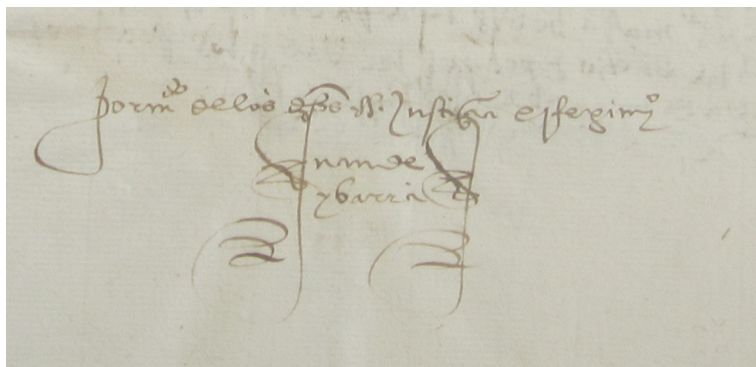 por mdo de los dhos sres Justiçia e regimyo
Juan de
ybarra